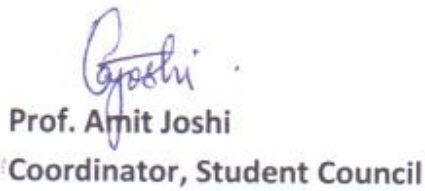 Prof. Amit Joshi
Coordinator, Student Council